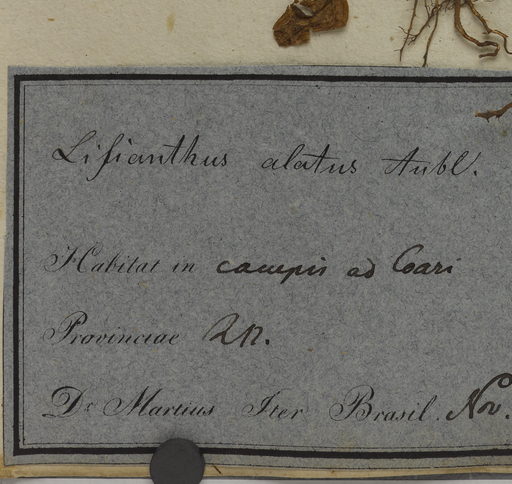 Lisianthus alatus Aubl.
Habitat in campis ad Coari
Provinciae R.N.
Dr Martius Iter Brasil. Nov.